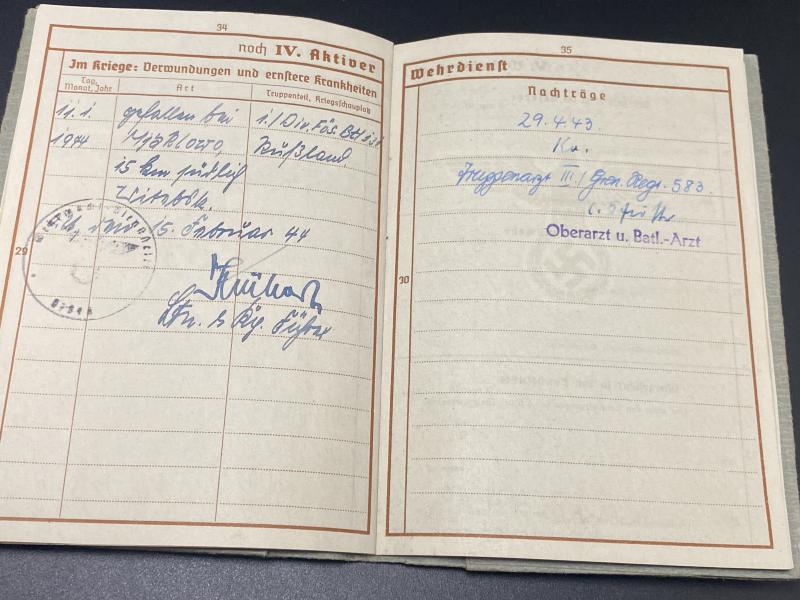 34
noch IV. Aktiver
Im Kriege: Verwundungen und ernstere Krankheiten
Tag, Monat, Jahr
Art
Truppenteil, Kriegsschauplatz
11.1. gefallen bei 1./Div. Füs. Btl.
1944 Rußland
15 km südlich
Witebsk.
den 15. Februar 44
Ltn. u. Kp. Führer
29
35
Wehrdienst
Nachträge
29.4.43.
Kv.
Truppenarzt III/Gren. Regt. 583
Oberarzt u. Batl.-Arzt
30